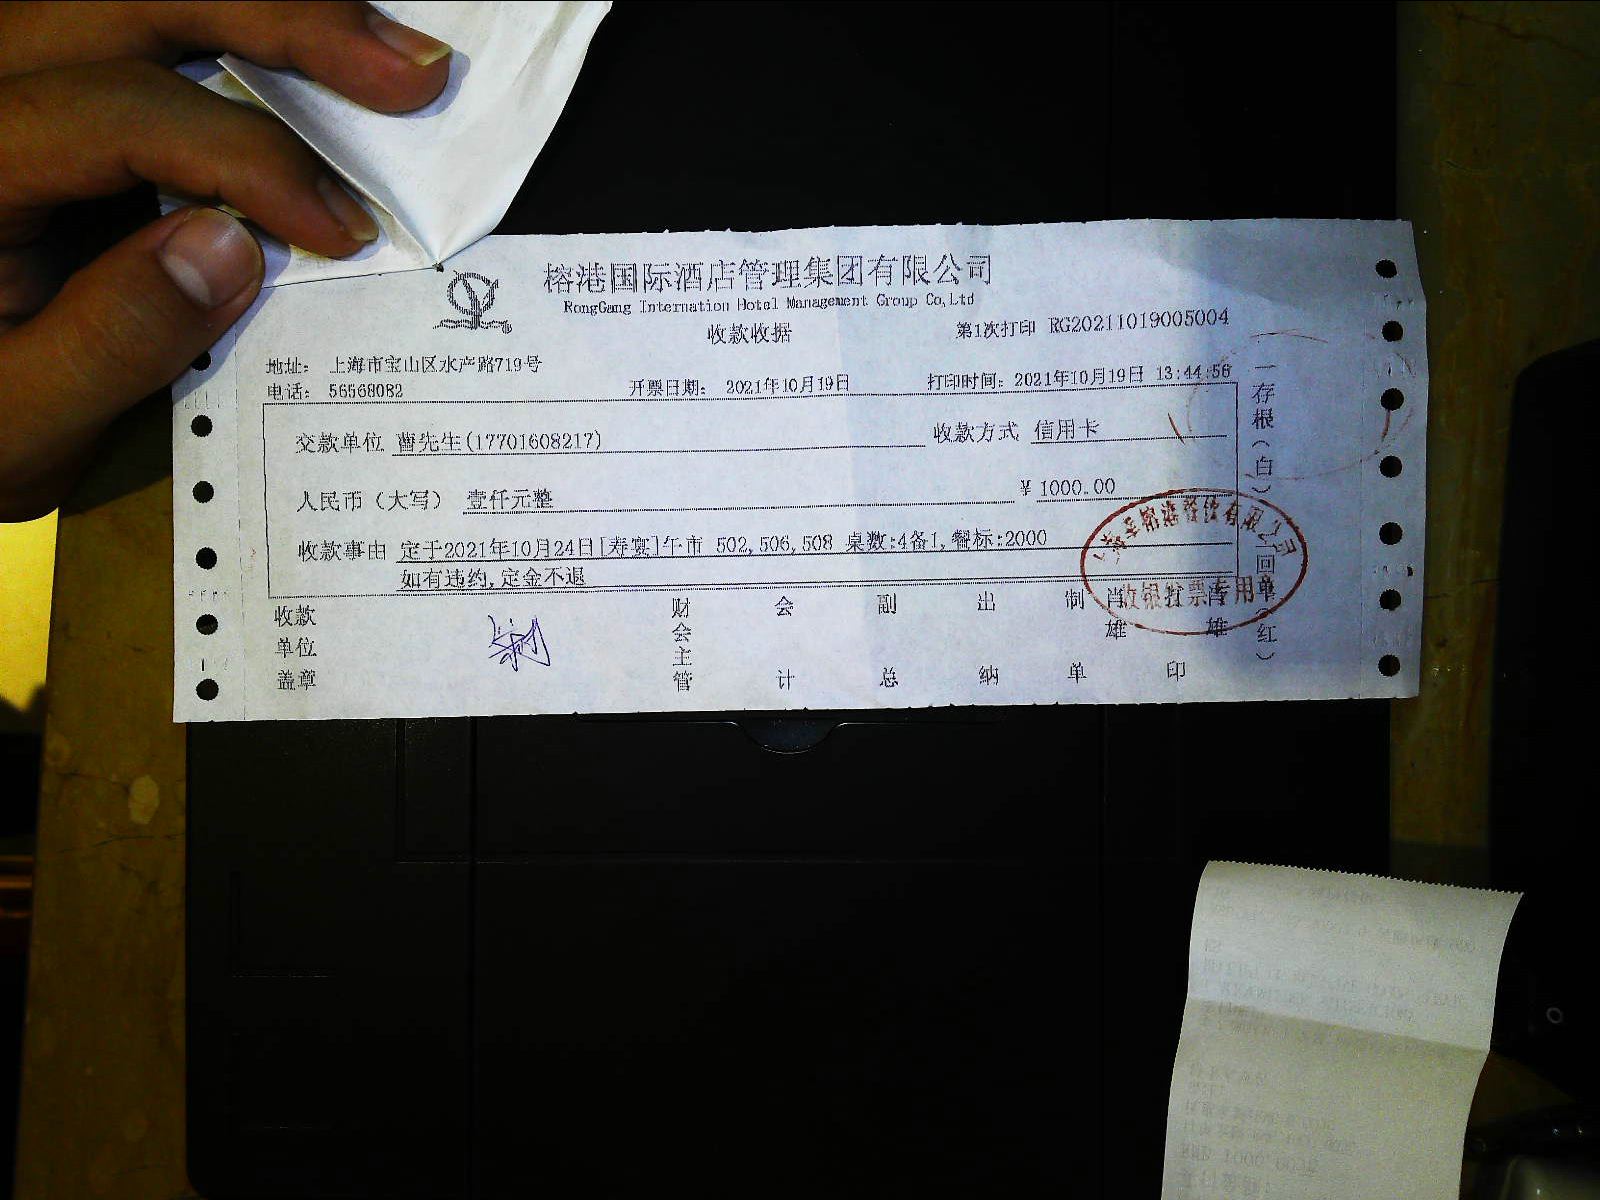 榕港国际酒店管理集团有限公司
RongGang Internation Hotel Management Group Co,Ltd
收款收据
第1次打印 RG20211019005004
地址： 上海市宝山区水产路719号
电话： 56568082
开票日期： 2021年10月19日
打印时间：2021年10月19日 13:44:56
交款单位 曹先生(17701608217)
收款方式 信用卡
人民币（大写） 壹仟元整
¥ 1000.00
收款事由 定于2021年10月24日[寿宴]午市 502,506,508 桌数:4备1,餐标:2000
如有违约,定金不退
收款单位盖章
财会主管
会计
副总
出纳
制单
肖雄
打印
肖雄
一存根（白） 二回单（红）
收银发票专用章